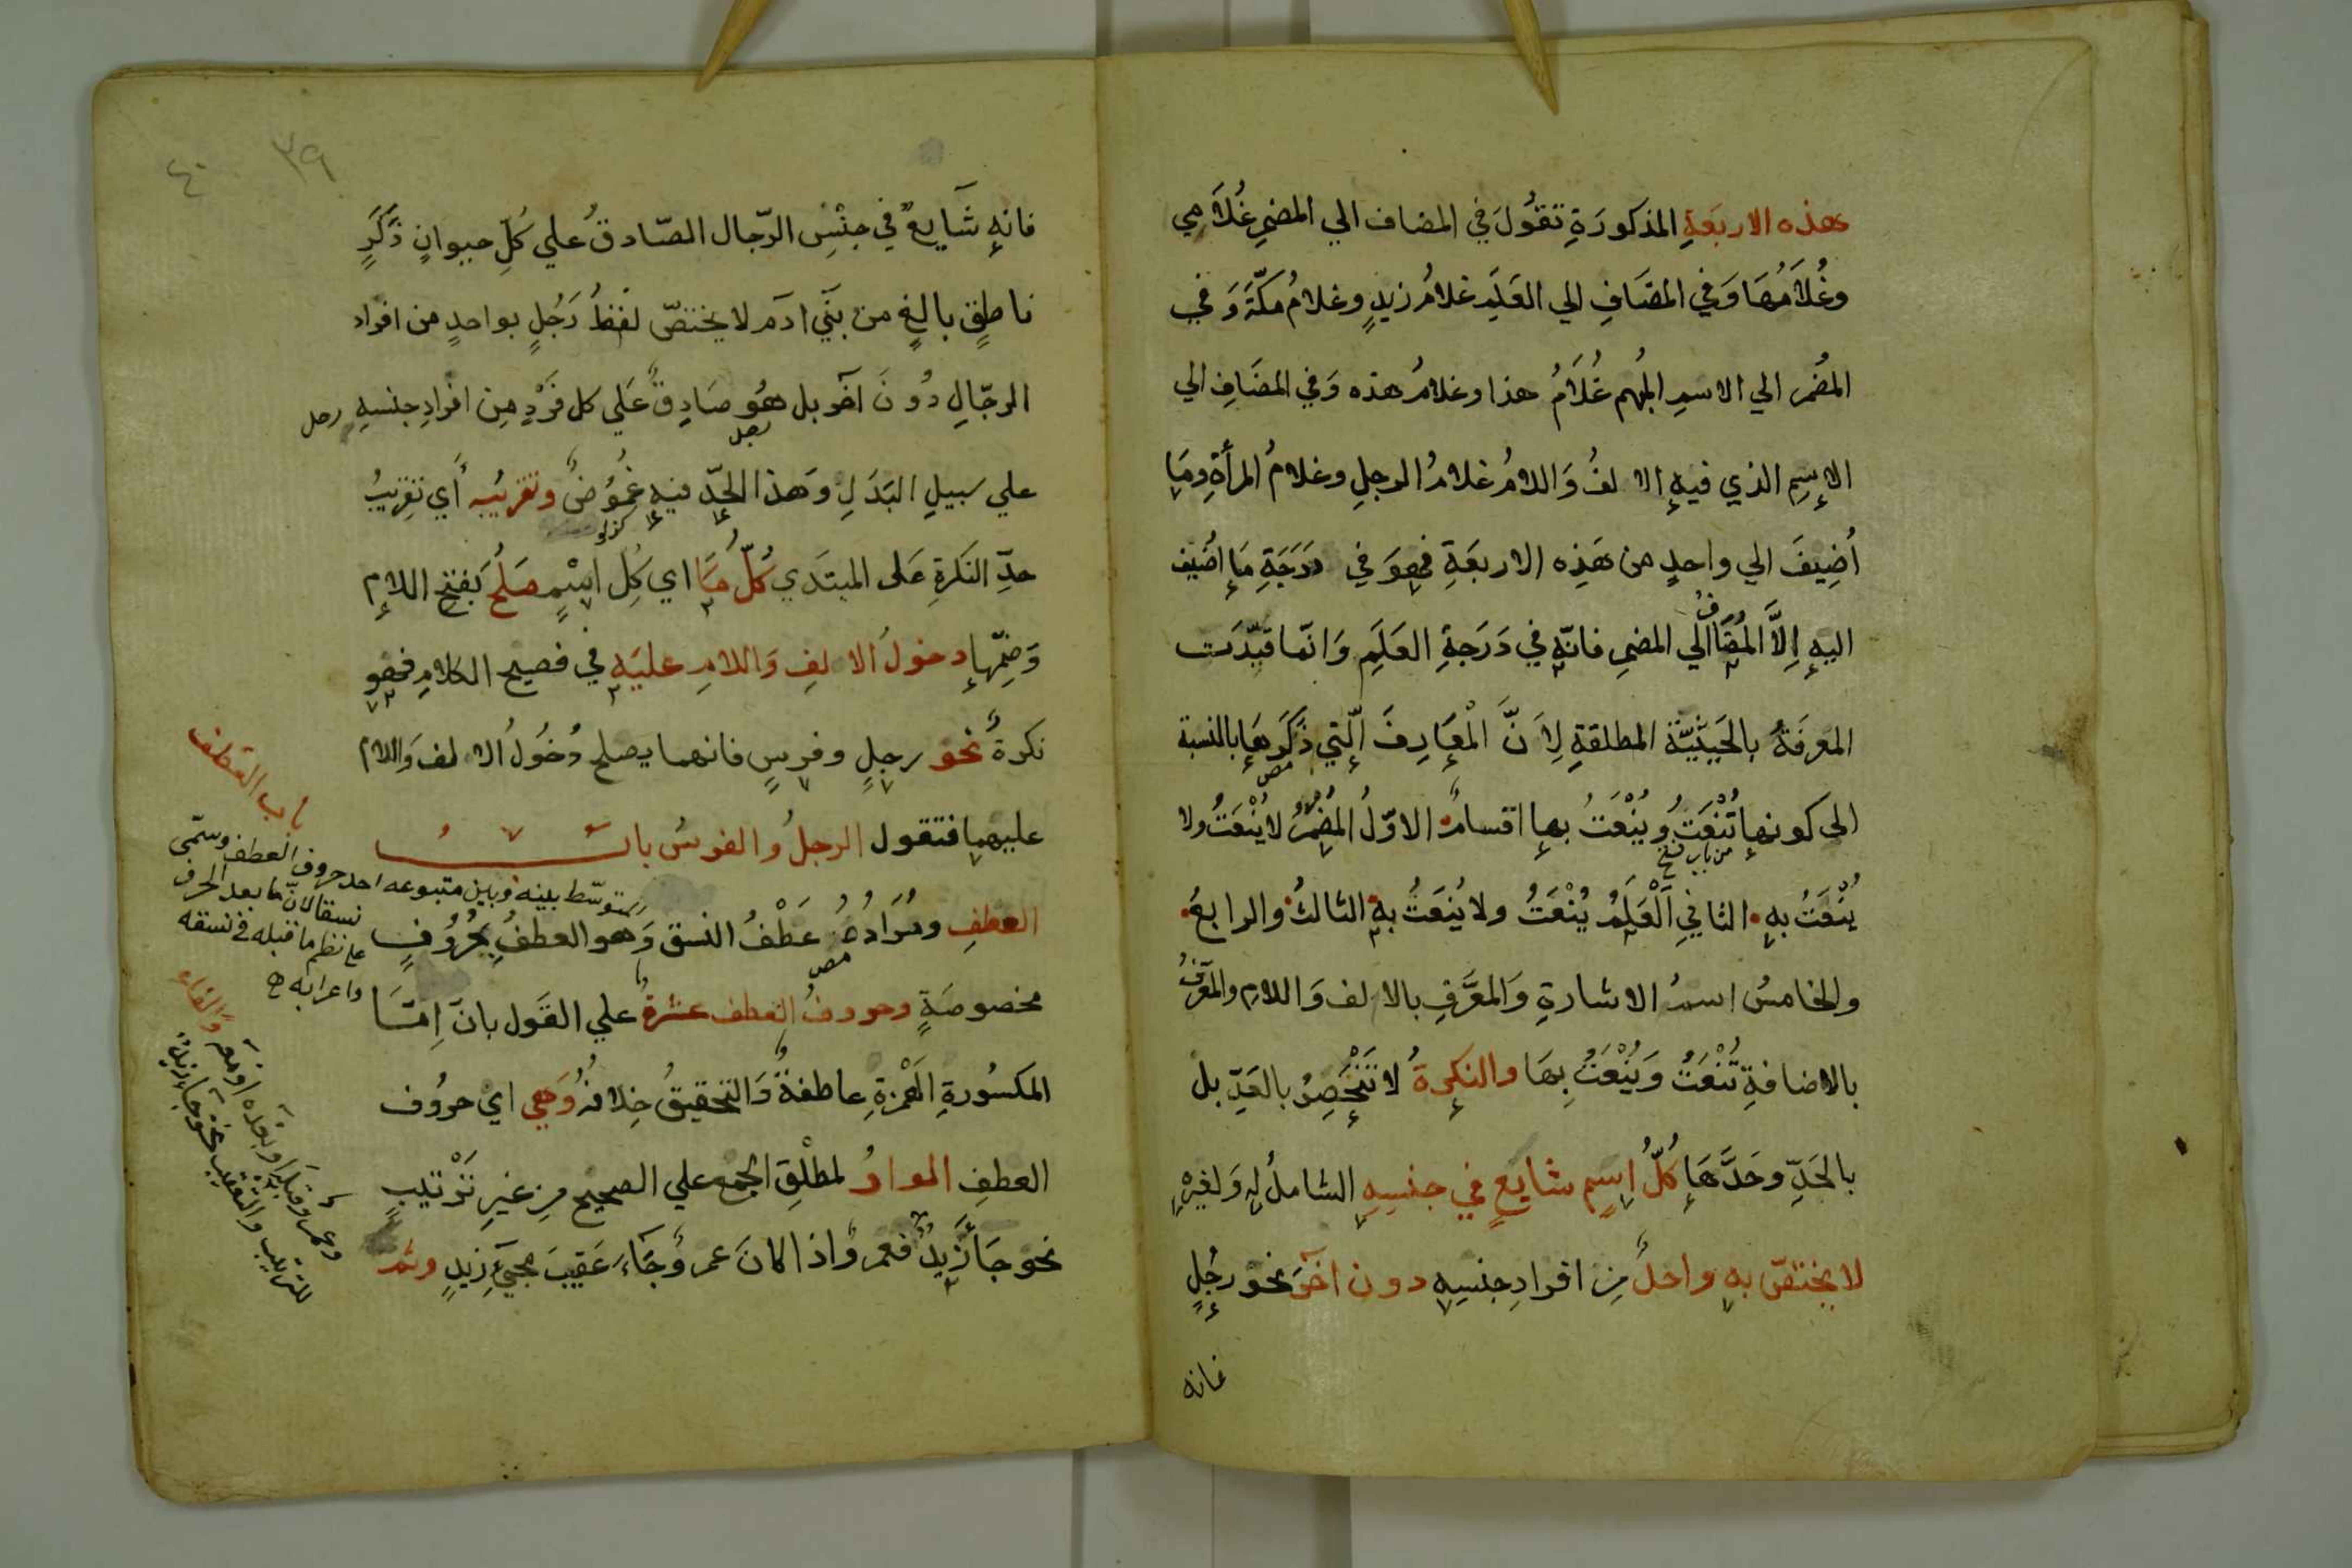 هذه الاربَعَةِ المذكورَةِ تقُولَ في المضاف الي المضمرِ غُلاَمي
وغُلاَمُهَا وَفي المضَافِ الي العَلَمِ غلامُ زيدٍ وغلامُ مكّةَ وَفي
المضُمر الي الاسمِ المُبهم غُلاَمُ هذا وغلامُ هذه وَفي المضَافِ الي
الاِسِم الذي فيهِ الالفُ وَاللامُ غلامُ الرجلِ وغلامُ المرأةِ ومَا
اُضِيفَ الي واحدٍ من هَذِه الاربعَةِ فهوَ في دَرَجَةِ مَا اضُيف
اليهِ اِلاَّ المُضَاف الي المضمرِ فانّهِ في دَرَجةِ العَلَمِ وَانّما قيّدَت
المعرفَةُ بالحَيثيّة المطلقةِ لِاَنَّ الْمعَارِفَ الّتي ذَكَرهَا بالنسبة
الي كونها تُنْعَتُ ويُنْعَتُ بها اقسامٌ الاوّلُ المُضْمَرُ لا يُنْعَتُ ولا
يُنْعَتُ بهِ الثاني الْعَلَمُ يُنْعَتُ ولا يُنعَتُ بهِ الثالثُ والرابعُ
والخامسُ اسمُ الاشارةِ وَالمعَرَّفِ بالالف وَاللامِ والمعَرّفُ
بالاضافةِ تُنْعَتُ وَيُنْعَتُ بِهَا والنكِرةُ لا تَنْحَصِرُ بالعَدِّ بل
بالحَدِّ وحَدَّهَا كُلُّ اِسٍم شايعٍ في جنسِهِ الشاملُ لهِ وَلغيرِهِ
لا يختصّ بهِ واحدٌ مِن افرادِ جنسِهِ دون آخَرَ نحو رجُلٍ
فانه
٣٩
٤٠
فانهِ شَايعٌ في جِنْسِ الرّجال الصّادقُ علي كُلِّ حيوانٍ ذَكَرٍ
ناطِقٍ بالِغٍ من بَنِي ادَم لا يختصّ لفظُ رَجُلٍ بواحدٍ من افراد
الرجّالِ دُونَ آخَر بل هُو صَادِقٌ عَلي كل فَرْدٍ مِن افرادِ جنسِهِ رجل
رجل
علي سبيلِ البَدَلِ وَهَذا الحَدّ فيهِ غمُوُضٌ وتقريبُه أَي تقرِيبُ
حدِّ النَكرةِ عَلى المبتَدي كُلّ مَا اي كُل اسْمٍ صَلَحَ بَفتحِ اللامِ
وَضِمّها دخولُ الالفِ وَاللامِ عليَهِ في فصيح الكلامِ فهو
نكرةٌ نحو رجلٍ وفرسٍ فانهما يصلح دُخُولُ الالف وَاللام
عليهما فتقول الرجلُ والفرسُ بابُ
العطفِ ومُرَادُهُ عَطْفُ النسق وَهو العطفُ بحُرُوُفٍ
مخصوصَةٍ وحروفُ العطف عشرةٌ علي القَول بانَ اِمّا
المكسُورةِ الهَمْزةِ عاطفةٌ وَالتحقيقُ خِلافهُ وَهي اي حروُف
العطفِ الواوُ لمطلْقِ الجمَع علي الصحيح مِن غيرِ تَرْتيبٍ
نحو جَا زَيدٌ فعمروٌ اذا كانَ عمروٌ جَاءَ عَقِيبَ مجيِئِ زيدٍ وثم
باب العَطف
يتوسّط بينه وبين متبوعه احد حروف العطف وسمّى
نسقا لانّ ما بعد الحرف
علي نظم ما قبله في نسقه
واعرابه ص
وعمرو قبله او بعده او معه والفاء
للترتيب والتعقيب نحو جا زيدٌ